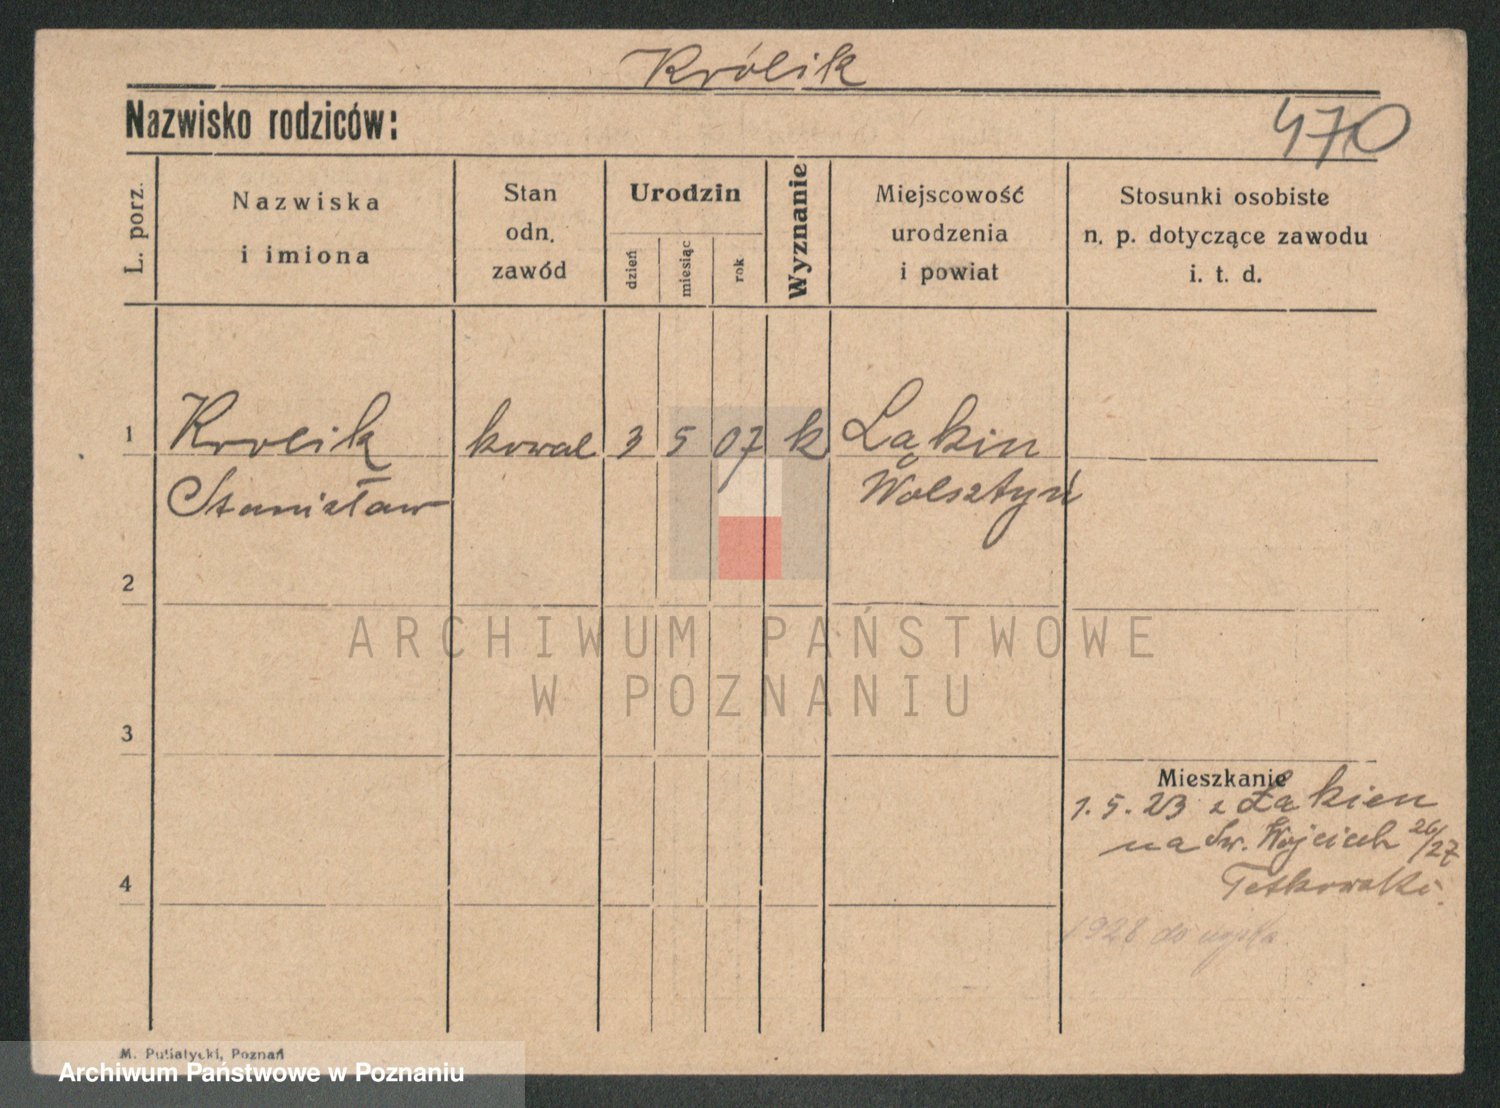 Królik
Nazwisko rodziców:
470
L. porz.
Nazwiska
i imiona
Stan
odn.
zawód
Urodzin
dzień
miesiąc
rok
Wyznanie
Miejscowość
urodzenia
i powiat
Stosunki osobiste
n. p. dotyczące zawodu
i. t. d.
1
Krolik
Stanisław
kowal
3
5
07
k
Łąkin
Wolsztyn
2
ARCHIWUM PAŃSTWOWE
W POZNANIU
3
Mieszkanie
1.5.23 z Łąkien
na Św. Wojciech 26/27
4
1928 do
M. Putiatycki, Poznań
Archiwum Państwowe w Poznaniu